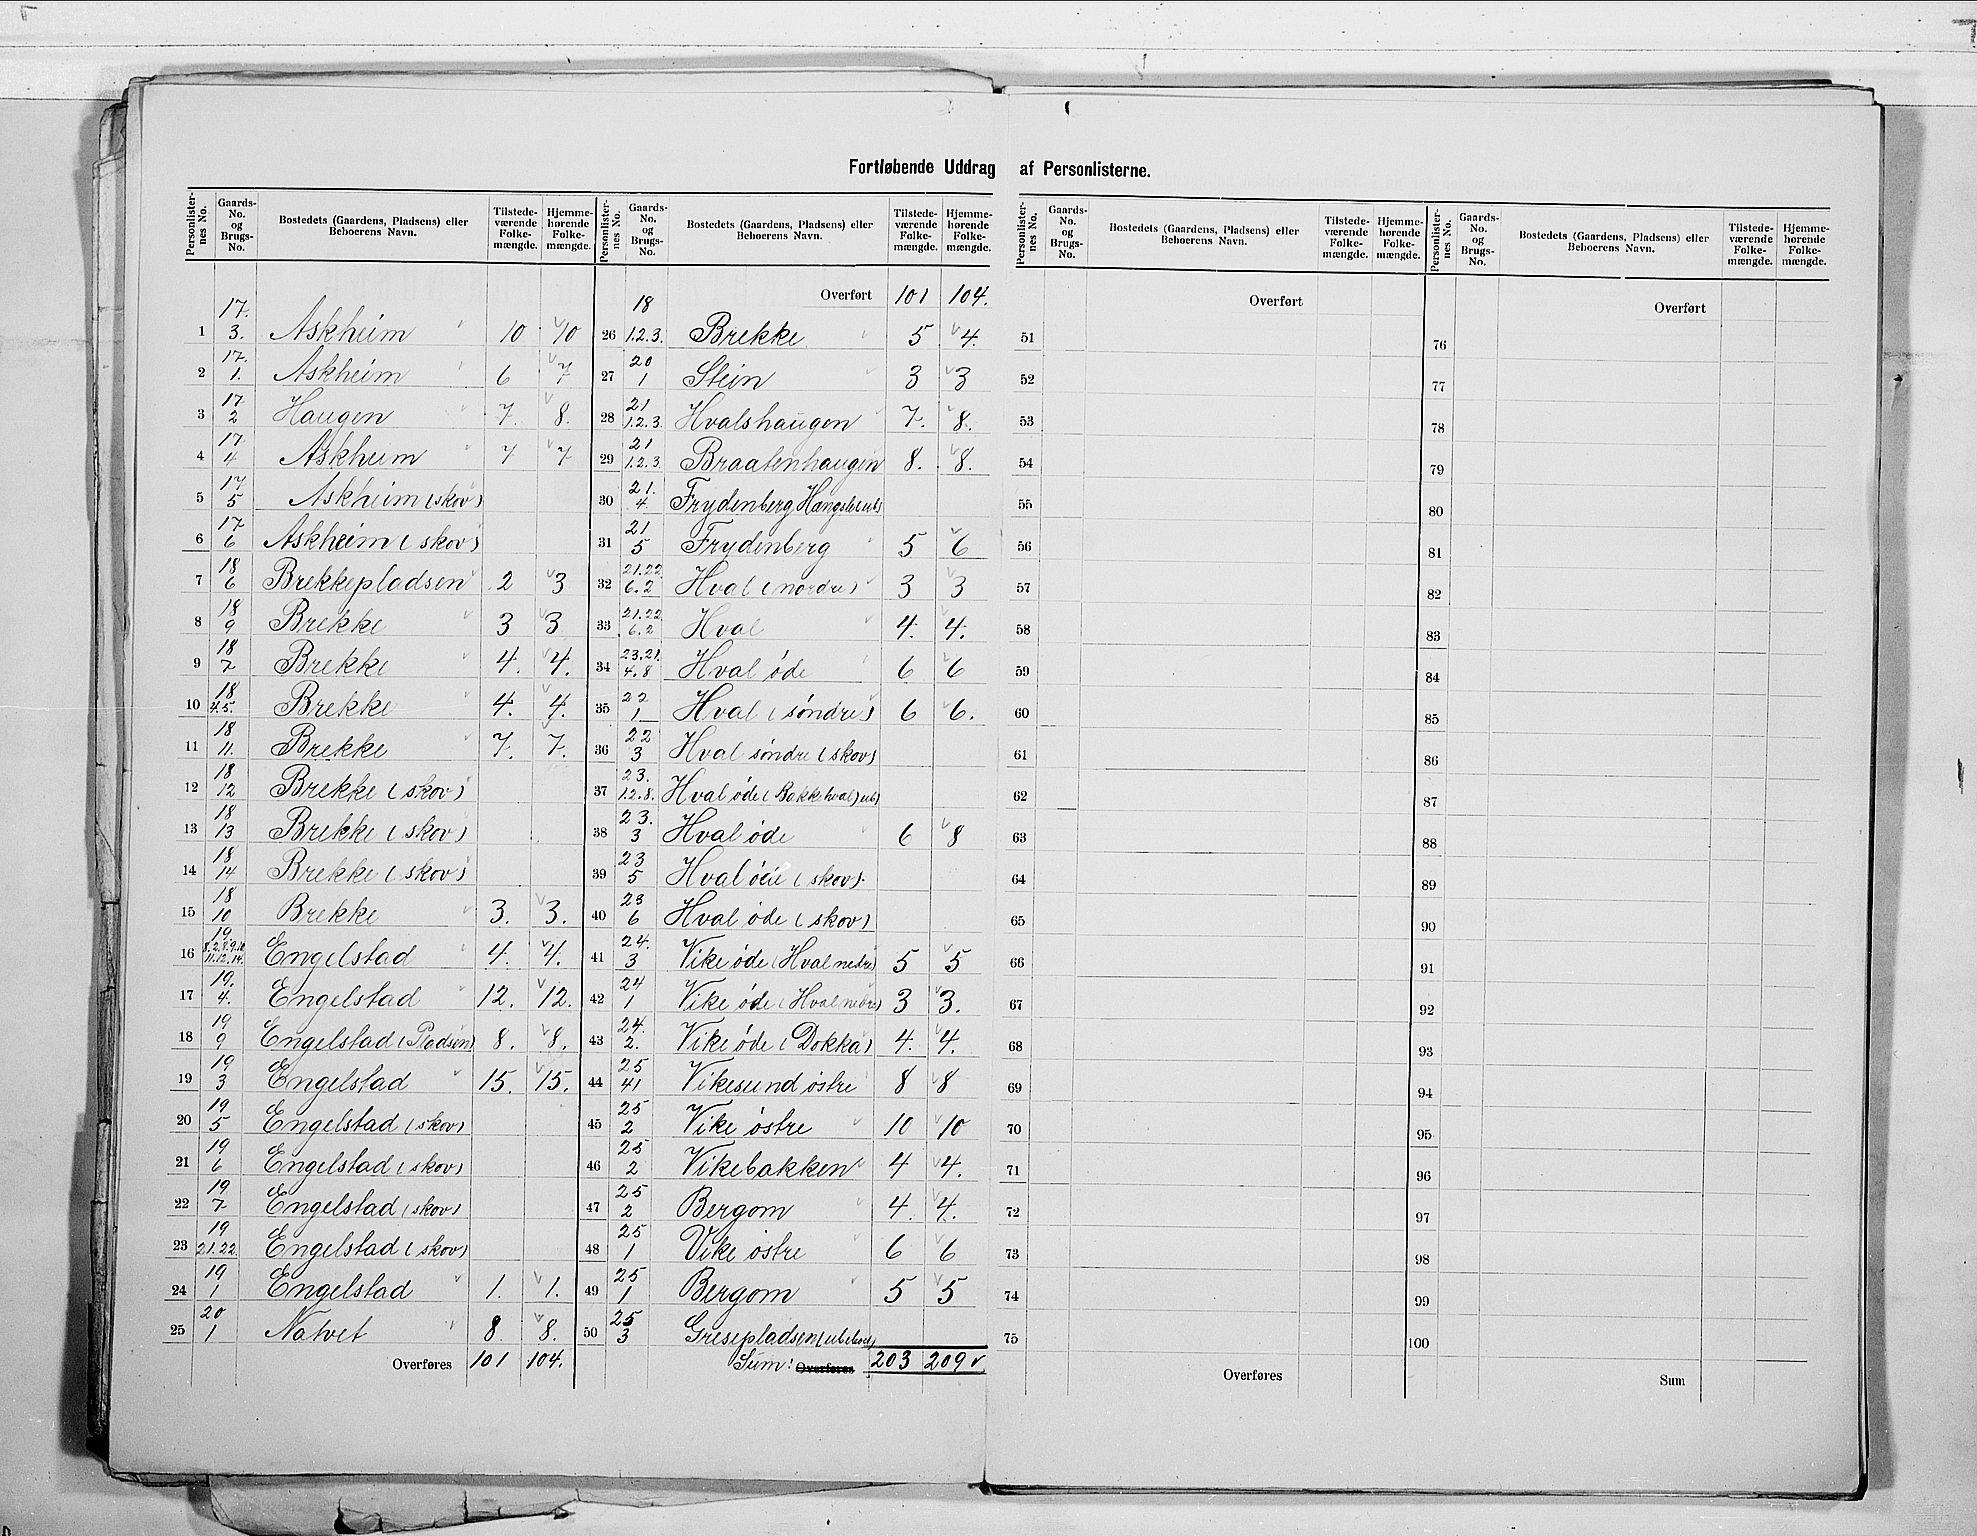 Fortløbende Uddrag af Personlisterne.
Personlister-nes No. | Gaards-No. og Brugs-No. | Bostedets (Gaardens, Pladsens) eller Beboerens Navn. | Tilstede-værende Folke-mængde. | Hjemme-hørende Folke-mængde.
1 | 17. 3. | Askheim | 10 | 10
2 | 17. 1. | Askheim | 6 | 7
3 | 17 2 | Haugen | 7. | 8.
4 | 17 4 | Askheim | 7 | 7
5 | 17 5 | Askheim (skov)
6 | 17 6 | Askheim (skov)
7 | 18 6 | Brekkepladsen | 2 | 3
8 | 18 9 | Brekke | 3 | 3
9 | 18 7 | Brekke | 4. | 4.
10 | 18 4.5. | Brekke | 4. | 4.
11 | 18 11. | Brekke | 7. | 7.
12 | 18 12 | Brekke (skov)
13 | 18 13 | Brekke (skov)
14 | 18 14 | Brekke (skov)
15 | 18 10 | Brekke | 3. | 3.
16 | 19. | Engelstad | 4. | 4.
17 | 19. 4. | Engelstad | 12. | 12.
18 | 19 9 | Engelstad (Pladsen) | 8. | 8.
19 | 19 3 | Engelstad | 15. | 15.
20 | 19 5 | Engelstad (skov)
21 | 19 6 | Engelstad (skov)
22 | 19 7 | Engelstad (skov)
23 | 19 21.22. | Engelstad (skov)
24 | 19 1 | Engelstad | 1. | 1.
25 | 20 1 | Natvet | 8. | 8.
Overføres | 101 | 104.
Personlister-nes No. | Gaards-No. og Brugs-No. | Bostedets (Gaardens, Pladsens) eller Beboerens Navn. | Tilstede-værende Folke-mængde. | Hjemme-hørende Folke-mængde.
Overført | 101 | 104.
26 | 18 1.2.3. | Brekke | 5 | 4.
27 | 20 1 | Stein | 3 | 3
28 | 21 1.2.3. | Hvalshaugen | 7. | 8.
29 | 21 1.2.3. | Braatenhaugen | 8. | 8.
30 | 21. 4 | Frydenberg
31 | 21 5 | Frydenberg | 5 | 6
32 | 21.22. 6.2 | Hval (nordre) | 3 | 3
33 | 21.22. 6.2 | Hval | 4. | 4.
34 | 23.21. 4.8 | Hval øde | 6 | 6
35 | 22 1 | Hval (søndre) | 6 | 6.
36 | 22 3 | Hval søndre (skov)
37 | 23. 1.2.8. | Hval øde (Bakkehval) ub)
38 | 23. 3 | Hval øde | 6 | 8
39 | 23 5 | Hval øde (skov).
40 | 23 6 | Hval øde (skov)
41 | 24. 3 | Vike øde (Hval nedre) | 5 | 5
42 | 24 1 | Vike øde (Hval nedre) | 3 | 3.
43 | 24. 2. | Vike øde (Dokka) | 4. | 4.
44 | 25 41 | Vikesund østre | 8 | 8
45 | 25 2 | Vike østre | 10 | 10
46 | 25 2 | Vikebakken | 4 | 4.
47 | 25 2 | Bergom | 4. | 4.
48 | 25 1 | Vike østre | 6 | 6
49 | 25 1 | Bergom | 5 | 5
50 | 25 3 | Gresepladsen (ubeboet)
Sum: Overføres | 203 | 209
Personlister-nes No. | Gaards-No. og Brugs-No. | Bostedets (Gaardens, Pladsens) eller Beboerens Navn. | Tilstede-værende Folke-mængde. | Hjemme-hørende Folke-mængde.
Overført
51
52
53
54
55
56
57
58
59
60
61
62
63
64
65
66
67
68
69
70
71
72
73
74
75
Overføres
Personlister-nes No. | Gaards-No. og Brugs-No. | Bostedets (Gaardens, Pladsens) eller Beboerens Navn. | Tilstede-værende Folke-mængde. | Hjemme-hørende Folke-mængde.
Overført
76
77
78
79
80
81
82
83
84
85
86
87
88
89
90
91
92
93
94
95
96
97
98
99
100
Sum